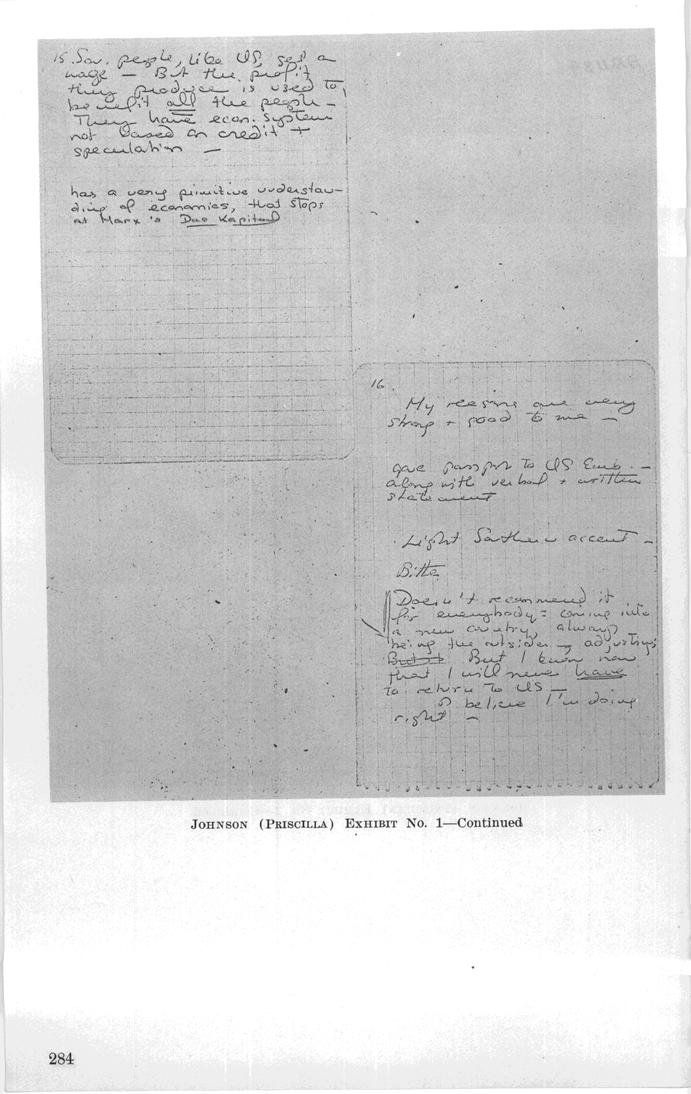 15. Sov. people, like US, get a
wage — But the profit
they produce is used to
benefit all the people —
They have econ. system
not based on credit +
speculation —
has a very primitive understan-
ding of economics, that stops
at Marx's Das Kapital
16.
My reasons are very
strong + good to me —
gave passprt to US Emb. —
along with verbal + written
statement
Light Southern accent —
Bitte
Doesn't recommend it
for everybody = coming into
a new country, always
being the outsider — adjusting
But I know now
that I will never have
to return to US —
I believe I'm doing
right —
JOHNSON (PRISCILLA) EXHIBIT No. 1—Continued
284